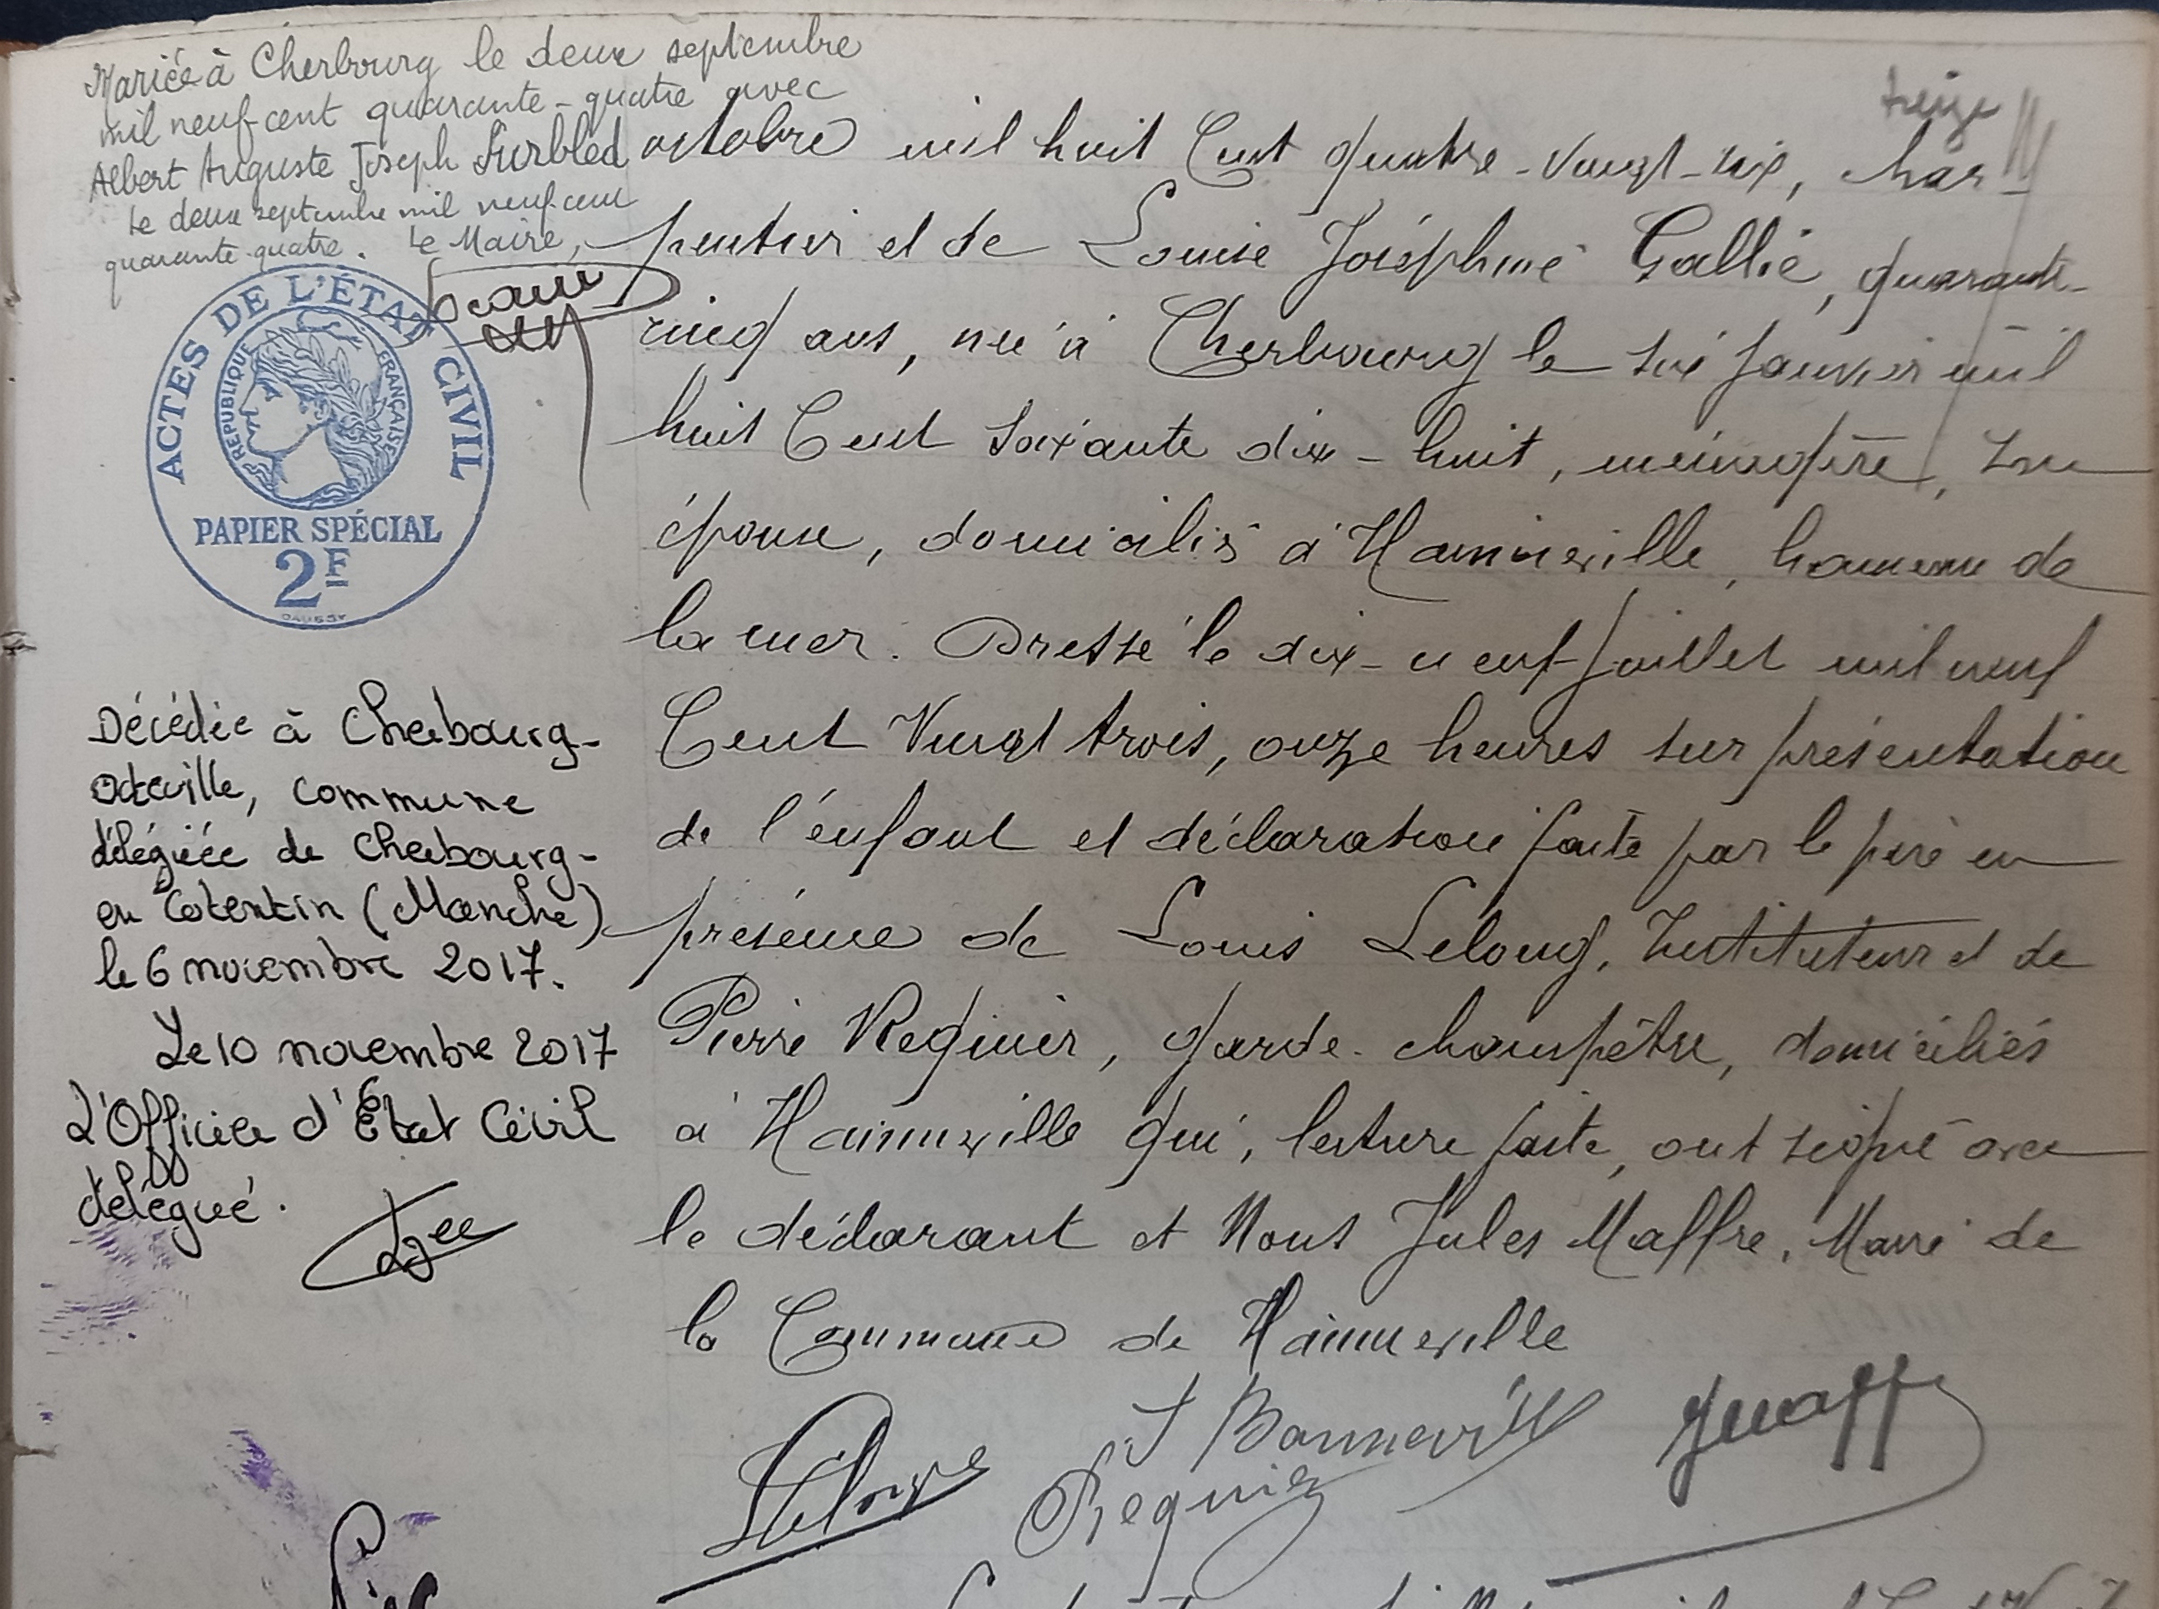 treize
Mariée à Cherbourg le deux septembre
mil neuf cent quarante-quatre avec
Albert Auguste Joseph Surbled
Le deux septembre mil neuf cent
quarante-quatre. Le Maire,
ACTES DE L'ÉTAT CIVIL
RÉPUBLIQUE FRANÇAISE
PAPIER SPÉCIAL
2F
DAUSSY
Décédée à Cherbourg-
Octeville, commune
déléguée de Cherbourg-
en Cotentin (Manche)
le 6 novembre 2017.
Le 10 novembre 2017
L'Officier d'État Civil
délégué.
octobre mil huit Cent quatre-vingt-six, char-
pentier et de Louise Joséphine Gallie, quarante-
cinq ans, née à Cherbourg le six janvier mil
huit Cent soixante dix-huit, ménagère, son
épouse, domiciliés à Hainneville, hameau de
la mer. Dressé le dix-neuf juillet mil neuf
Cent Vingt trois, onze heures sur présentation
de l'enfant et déclaration faite par le père en
présence de Louis Lelong, Instituteur et de
Pierre Regnier, garde-champêtre, domiciliés
à Hainneville qui, lecture faite, ont signé avec
le déclarant et Nous Jules Maffre, Maire de
la Commune de Hainneville
Lelong
J Bonneville
Regnier
JMaff